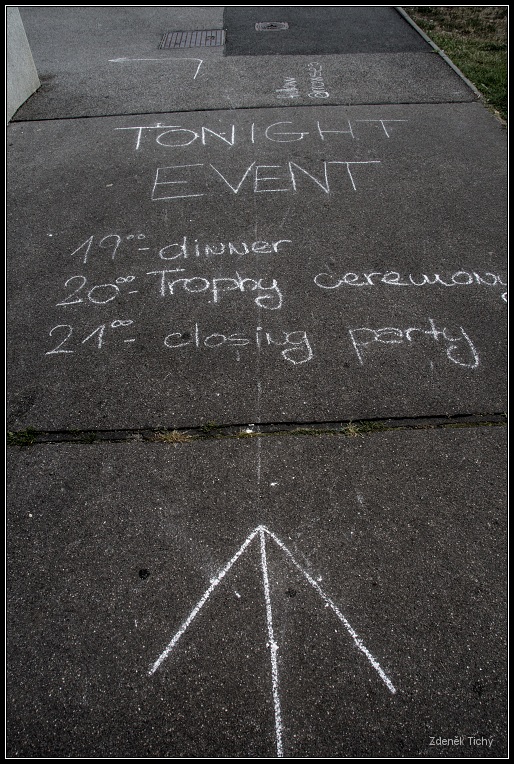 TONIGHT
EVENT
19⁰⁰- dinner
20⁰⁰- Trophy ceremony
21⁰⁰- closing party
Zdeněk Tichý